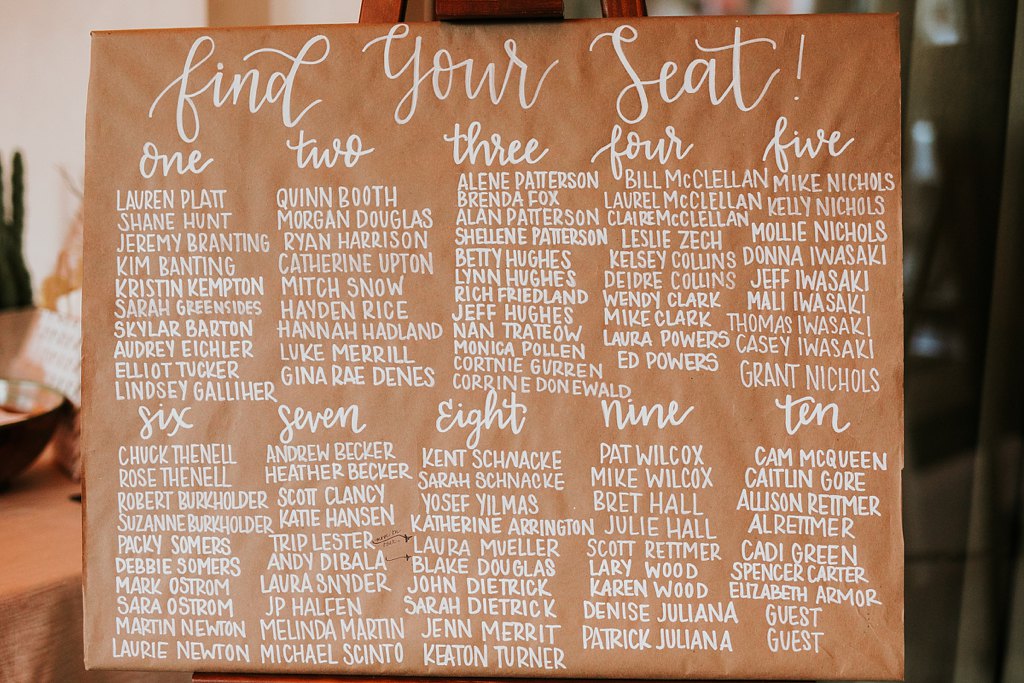 find Your Seat!
one
LAUREN PLATT
SHANE HUNT
JEREMY BRANTING
KIM BANTING
KRISTIN KEMPTON
SARAH GREENSIDES
SKYLAR BARTON
AUDREY EICHLER
ELLIOT TUCKER
LINDSEY GALLIHER
two
QUINN BOOTH
MORGAN DOUGLAS
RYAN HARRISON
CATHERINE UPTON
MITCH SNOW
HAYDEN RICE
HANNAH HADLAND
LUKE MERRILL
GINA RAE DENES
three
ALENE PATTERSON
BRENDA FOX
ALAN PATTERSON
SHELLENE PATTERSON
BETTY HUGHES
LYNN HUGHES
RICH FRIEDLAND
JEFF HUGHES
NAN TRATEOW
MONICA POLLEN
CORTNIE GURREN
CORRINE DONEWALD
four
BILL McCLELLAN
LAUREL McCLELLAN
CLAIRE McCLELLAN
LESLIE ZECH
KELSEY COLLINS
DEIDRE COLLINS
WENDY CLARK
MIKE CLARK
LAURA POWERS
ED POWERS
five
MIKE NICHOLS
KELLY NICHOLS
MOLLIE NICHOLS
DONNA IWASAKI
JEFF IWASAKI
MALI IWASAKI
THOMAS IWASAKI
CASEY IWASAKI
GRANT NICHOLS
six
CHUCK THENELL
ROSE THENELL
ROBERT BURKHOLDER
SUZANNE BURKHOLDER
PACKY SOMERS
DEBBIE SOMERS
MARK OSTROM
SARA OSTROM
MARTIN NEWTON
LAURIE NEWTON
seven
ANDREW BECKER
HEATHER BECKER
SCOTT CLANCY
KATIE HANSEN
TRIP LESTER
ANDY DIBALA
LAURA SNYDER
JP HALFEN
MELINDA MARTIN
MICHAEL SCINTO
Eight
KENT SCHNACKE
SARAH SCHNACKE
YOSEF YILMAS
KATHERINE ARRINGTON
LAURA MUELLER
BLAKE DOUGLAS
JOHN DIETRICK
SARAH DIETRICK
JENN MERRIT
KEATON TURNER
nine
PAT WILCOX
MIKE WILCOX
BRET HALL
JULIE HALL
SCOTT RETTMER
LARY WOOD
KAREN WOOD
DENISE JULIANA
PATRICK JULIANA
ten
CAM MCQUEEN
CAITLIN GORE
ALLISON RETTMER
AL RETTMER
CADI GREEN
SPENCER CARTER
ELIZABETH ARMOR
GUEST
GUEST